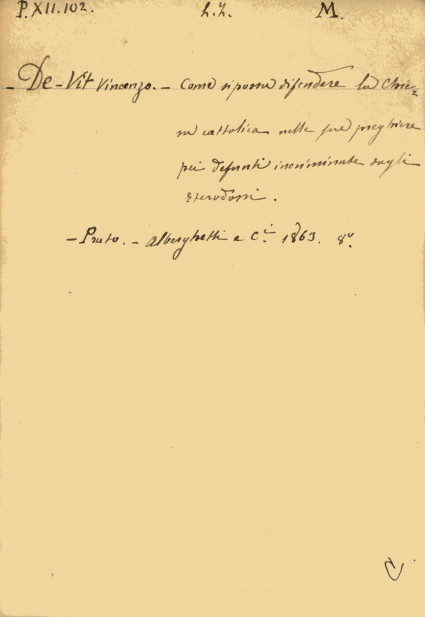 P.XII.102. h.h. M.
- De-Vit Vincenzo. - Come si possa difendere la Chie=
sa cattolica nelle sue preghiere
pei defunti incriminate dagli
Eterodossi.
- Prato. - Alberghetti e C.i 1863. 8º.